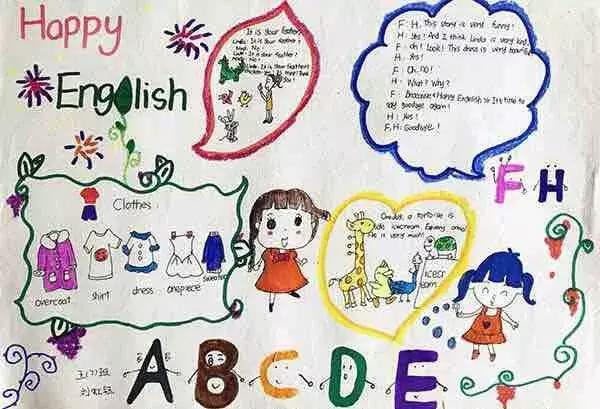 Happy
English
It is Your feather,
Linda: It is Your feather?
No.
is your feather?
No!
It is Your feather
F: H. This story is very funny!
H: Yes! And I think Linda is very kind.
F: oh! Look! This dress is very beautiful
H: Yes!
F: Oh, no!
H: What? Why?
F: Because Happy English or It's time to
say goodbye again!
H: Yes!
F, H: Goodbye!
F H
Clothes:
overcoat
shirt
dress
onepiece
sweater
One day, a tortoise is
icecream.
He is very much!
icecr
eam
A B C D E